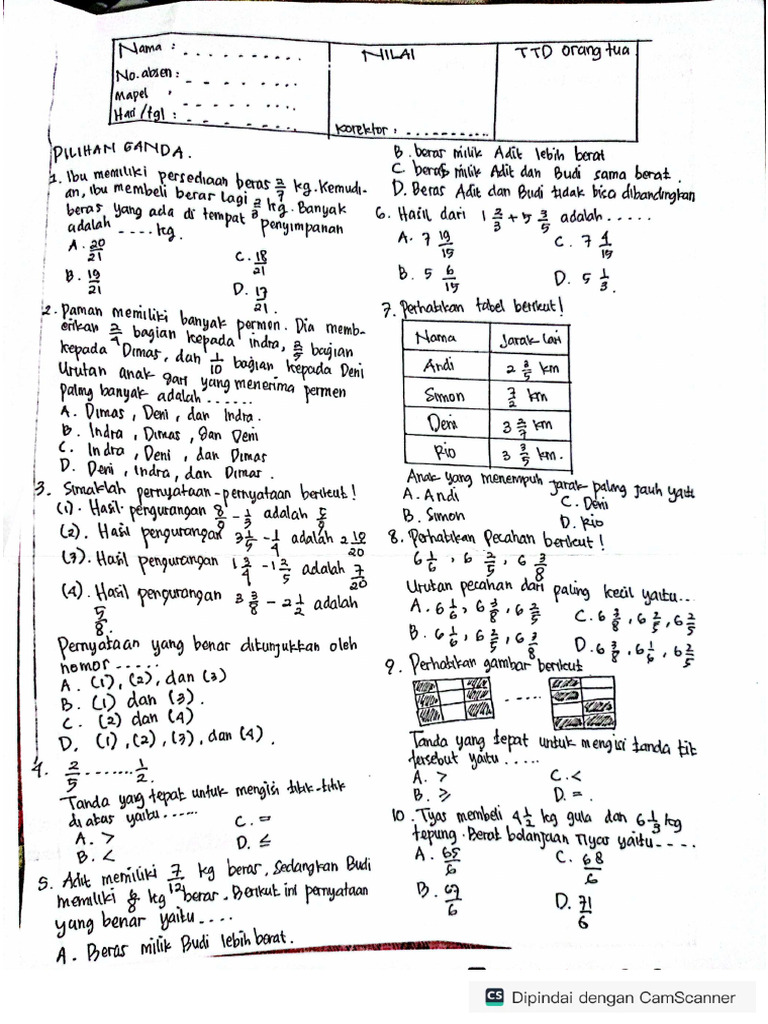 Nama : ..........
No. absen : ........
Mapel : ........
Hari /tgl : ........
NILAI
Korektor : ..........
TTD orang tua
PILIHAN GANDA.
1. Ibu memiliki persediaan beras 2/7 kg. Kemudi-
an, ibu membeli berar lagi 2/3 kg. Banyak
beras yang ada di tempat penyimpanan
adalah .... kg.
A. 20/21
B. 19/21
C. 18/21
D. 17/21.
2. Paman memiliki banyak permen. Dia memb-
erikan 2/4 bagian kepada indra, 2/5 bagian
kepada Dimas, dan 1/10 bagian kepada Deni
Urutan anak dari yang menerima permen
paling banyak adalah ......
A. Dimas, Deni, dan Indra.
B. Indra, Dimas, dan Deni
C. Indra, Deni, dan Dimas
D. Deni, Indra, dan Dimas.
3. Simaklah pernyataan-pernyataan berikut!
(1). Hasil pengurangan 8/9 - 1/3 adalah 5/9
(2). Hasil pengurangan 3 1/5 - 1/4 adalah 2 19/20
(3). Hasil pengurangan 1 3/4 - 1 2/5 adalah 7/20
(4). Hasil pengurangan 3 3/8 - 2 1/2 adalah
5/8.
Pernyataan yang benar ditunjukkan oleh
nomor .....
A. (1), (2), dan (3)
B. (1) dan (3).
C. (2) dan (4)
D. (1), (2), (3), dan (4).
4. 2/5 ....... 1/2.
Tanda yang tepat untuk mengisi titik-titik
di atas yaitu ......
A. >
B. <
C. =
D. ≤
5. Adit memiliki 7/12 kg berar, sedangkan Budi
memiliki 6/8 kg berar. Berikut ini pernyataan
yang benar yaitu ....
A. Beras milik Budi lebih berat.
B. beras milik Adit lebih berat
C. beras milik Adit dan Budi sama berat.
D. Beras Adit dan Budi tidak bisa dibandingkan
6. Hasil dari 1 2/3 + 5 3/5 adalah .....
A. 7 19/15
B. 5 6/15
C. 7 4/15
D. 5 1/3.
7. Perhatikan tabel berikut!
Nama Jarak Lari
Andi 2 3/5 km
Simon 7/2 km
Deni 3 2/7 km
Rio 3 3/5 km.
Anak yang menempuh jarak paling jauh yaitu
A. Andi
B. Simon
C. Deni
D. Rio
8. Perhatikan Pecahan berikut!
6 1/6, 6 2/5, 6 3/8
Urutan pecahan dari paling kecil yaitu...
A. 6 1/6, 6 3/8, 6 2/5
B. 6 1/6, 6 2/5, 6 3/8
C. 6 3/8, 6 2/5, 6 2/5
D. 6 3/8, 6 1/6, 6 2/5
9. Perhatikan gambar berikut
....
Tanda yang tepat untuk mengisi tanda tit
tersebut yaitu .....
A. >
B. ≥
C. <
D. = .
10. Tyas membeli 4 1/2 kg gula dan 6 1/3 kg
tepung. Berat belanjaan Tyas yaitu ....
A. 65/6
B. 67/6
C. 68/6
D. 71/6
CS Dipindai dengan CamScanner